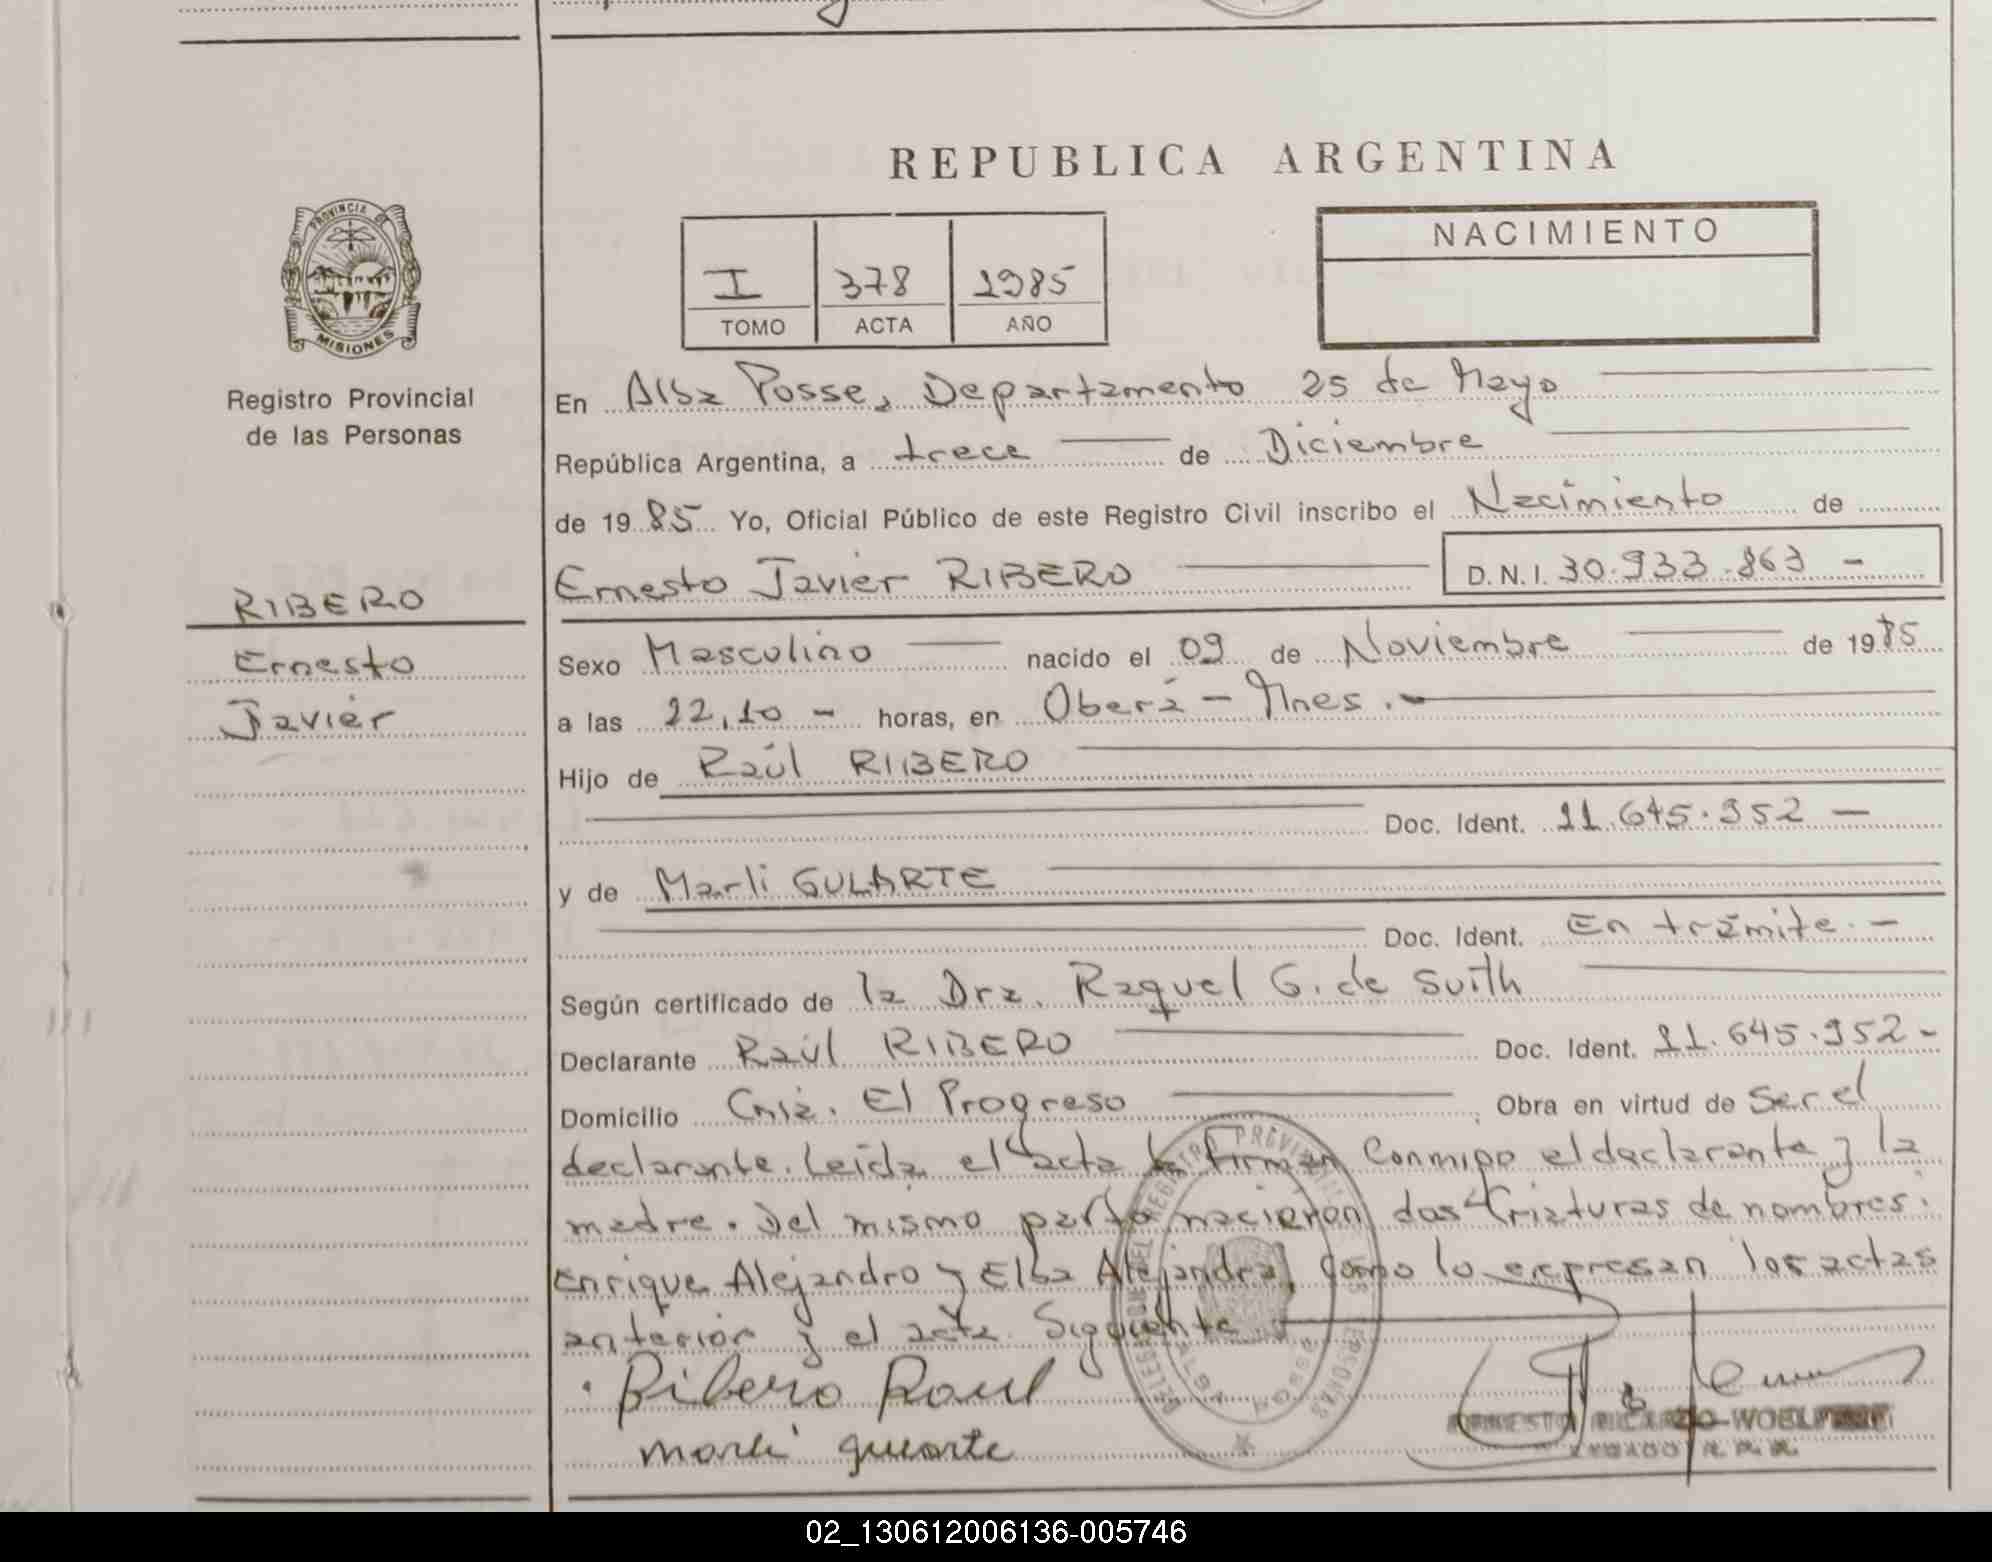 REPUBLICA ARGENTINA
PROVINCIA DE
MISIONES
Registro Provincial
de las Personas
I 378 1985
TOMO ACTA AÑO
NACIMIENTO
En Alba Posse, Departamento 25 de Mayo
República Argentina, a trece de Diciembre
de 1985 Yo, Oficial Público de este Registro Civil inscribo el Nacimiento de
Ernesto Javier RIBERO D.N.I. 30.933.863 -
RIBERO
Ernesto
Javier
Sexo Masculino nacido el 09 de Noviembre de 1985
a las 22,10 - horas, en Oberá - Mnes. -
Hijo de Raúl RIBERO
Doc. Ident. 11.645.952 -
y de Marli GULARTE
Doc. Ident. En trámite. -
Según certificado de la Dra. Raquel G. de
Declarante Raúl RIBERO Doc. Ident. 11.645.952 -
Domicilio Cnia. El Progreso ; Obra en virtud de ser el
declarante. Leída el acta la firman conmigo el declarante y la
madre. Del mismo parto nacieron dos criaturas de nombres:
Enrique Alejandro y Elba Alejandra, como lo expresan los actas
anterior y el acta siguiente
Ribero Raul
Marli gularte
ERNESTO RICARDO
02_130612006136-005746